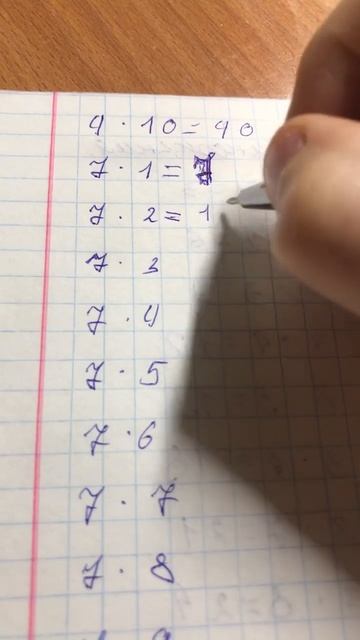 4 · 10 = 40
7 · 1 = 7
7 · 2 = 1
7 · 3
7 · 4
7 · 5
7 · 6
7 · 7
7 · 8